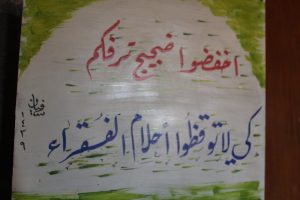 اخفضوا ضجيج ترفكم
كي لا توقظوا أحلام الفقراء